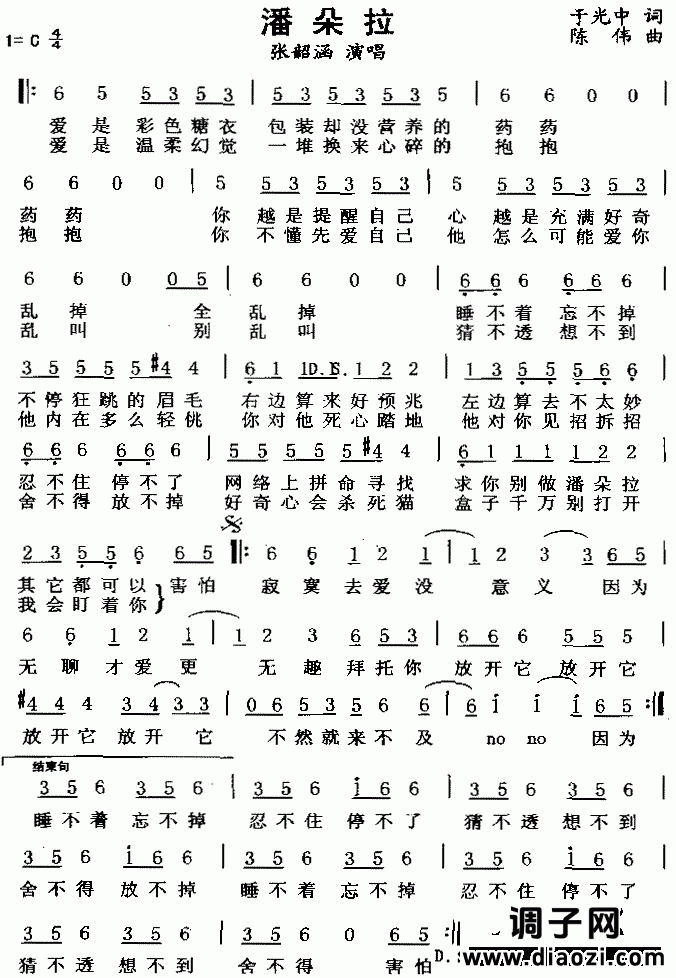 潘朵拉
于光中 词
1= C 4/4
张韶涵 演唱
陈 伟 曲
6 5 5353 | 53535 5 | 6 6 0 0
爱是 彩色糖衣 包装却没营养的 药药
爱是 温柔幻觉 一堆换来心碎的 抱抱
6 6 0 0 | 5 53 53 53 | 5 53 53 53
药药 你 越是提醒自己 心 越是充满好奇
抱抱 你 不懂先爱自己 他 怎么可能爱你
6 6 0 05 | 6 6 0 0 | 666 666
乱掉 全 乱掉 睡不着 忘不掉
乱叫 别 乱叫 猜不透 想不到
35 55 5#4 4 | 61 1 122 | 13 55 566
不停狂跳的眉毛 右边算来好预兆 左边算去不太妙
他内在多么轻佻 你对他死心踏地 他对你见招拆招
666 666 | 55 55 5#4 4 | 61 11 122
忍不住 停不了 网络上拼命寻找 求你别做潘朵拉
舍不得 放不掉 好奇心会杀死猫 盒子千万别打开
23 55 6 65 6 6 12 1 | 12 3 3 65
其它都可以 害怕 寂寞去爱没 意义 因为
我会盯着你
6 6 12 1 | 12 3 6 53 | 6 66 5 55
无聊才爱更 无趣拜托你 放开它 放开它
#4 44 34 33 | 06 53 56 6 | 6 i i i65
放开它 放开 它 不然就来不及 no no 因为
结束句
356 356 | 356 i66 | 356 356
睡不着 忘不掉 忍不住 停不了 猜不透 想不到
356 i66 | 356 356 | 356 i66
舍不得 放不掉 睡不着 忘不掉 忍不住 停不了
356 356 | 356 0 65
猜不透 想不到 舍不得 害怕
调子网
www.diaozi.com